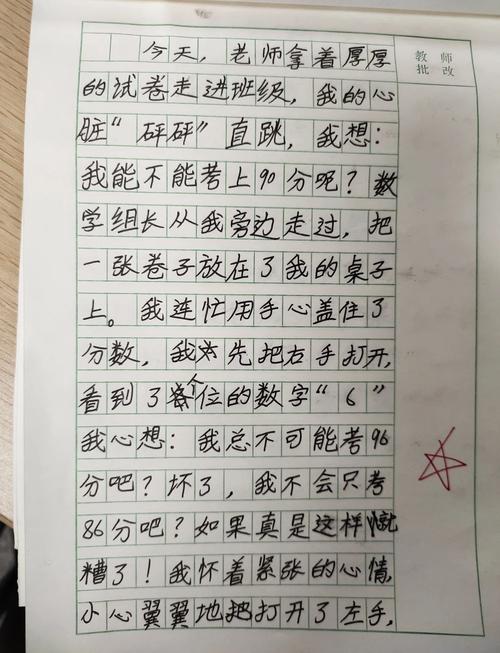 教师
批改
今天，老师拿着厚厚
的试卷走进班级，我的心
脏“砰砰”直跳，我想：
我能不能考上90分呢？数
学组长从我旁边走过，把
一张卷子放在了我的桌子
上。我连忙用手心盖住了
分数，我先把右手打开，
看到了个位的数字“6”
我心想：我总不可能考96
分吧？坏了，我不会只考
86分吧？如果真是这样就
糟了！我怀着紧张的心情，
小心翼翼地把打开了左手，